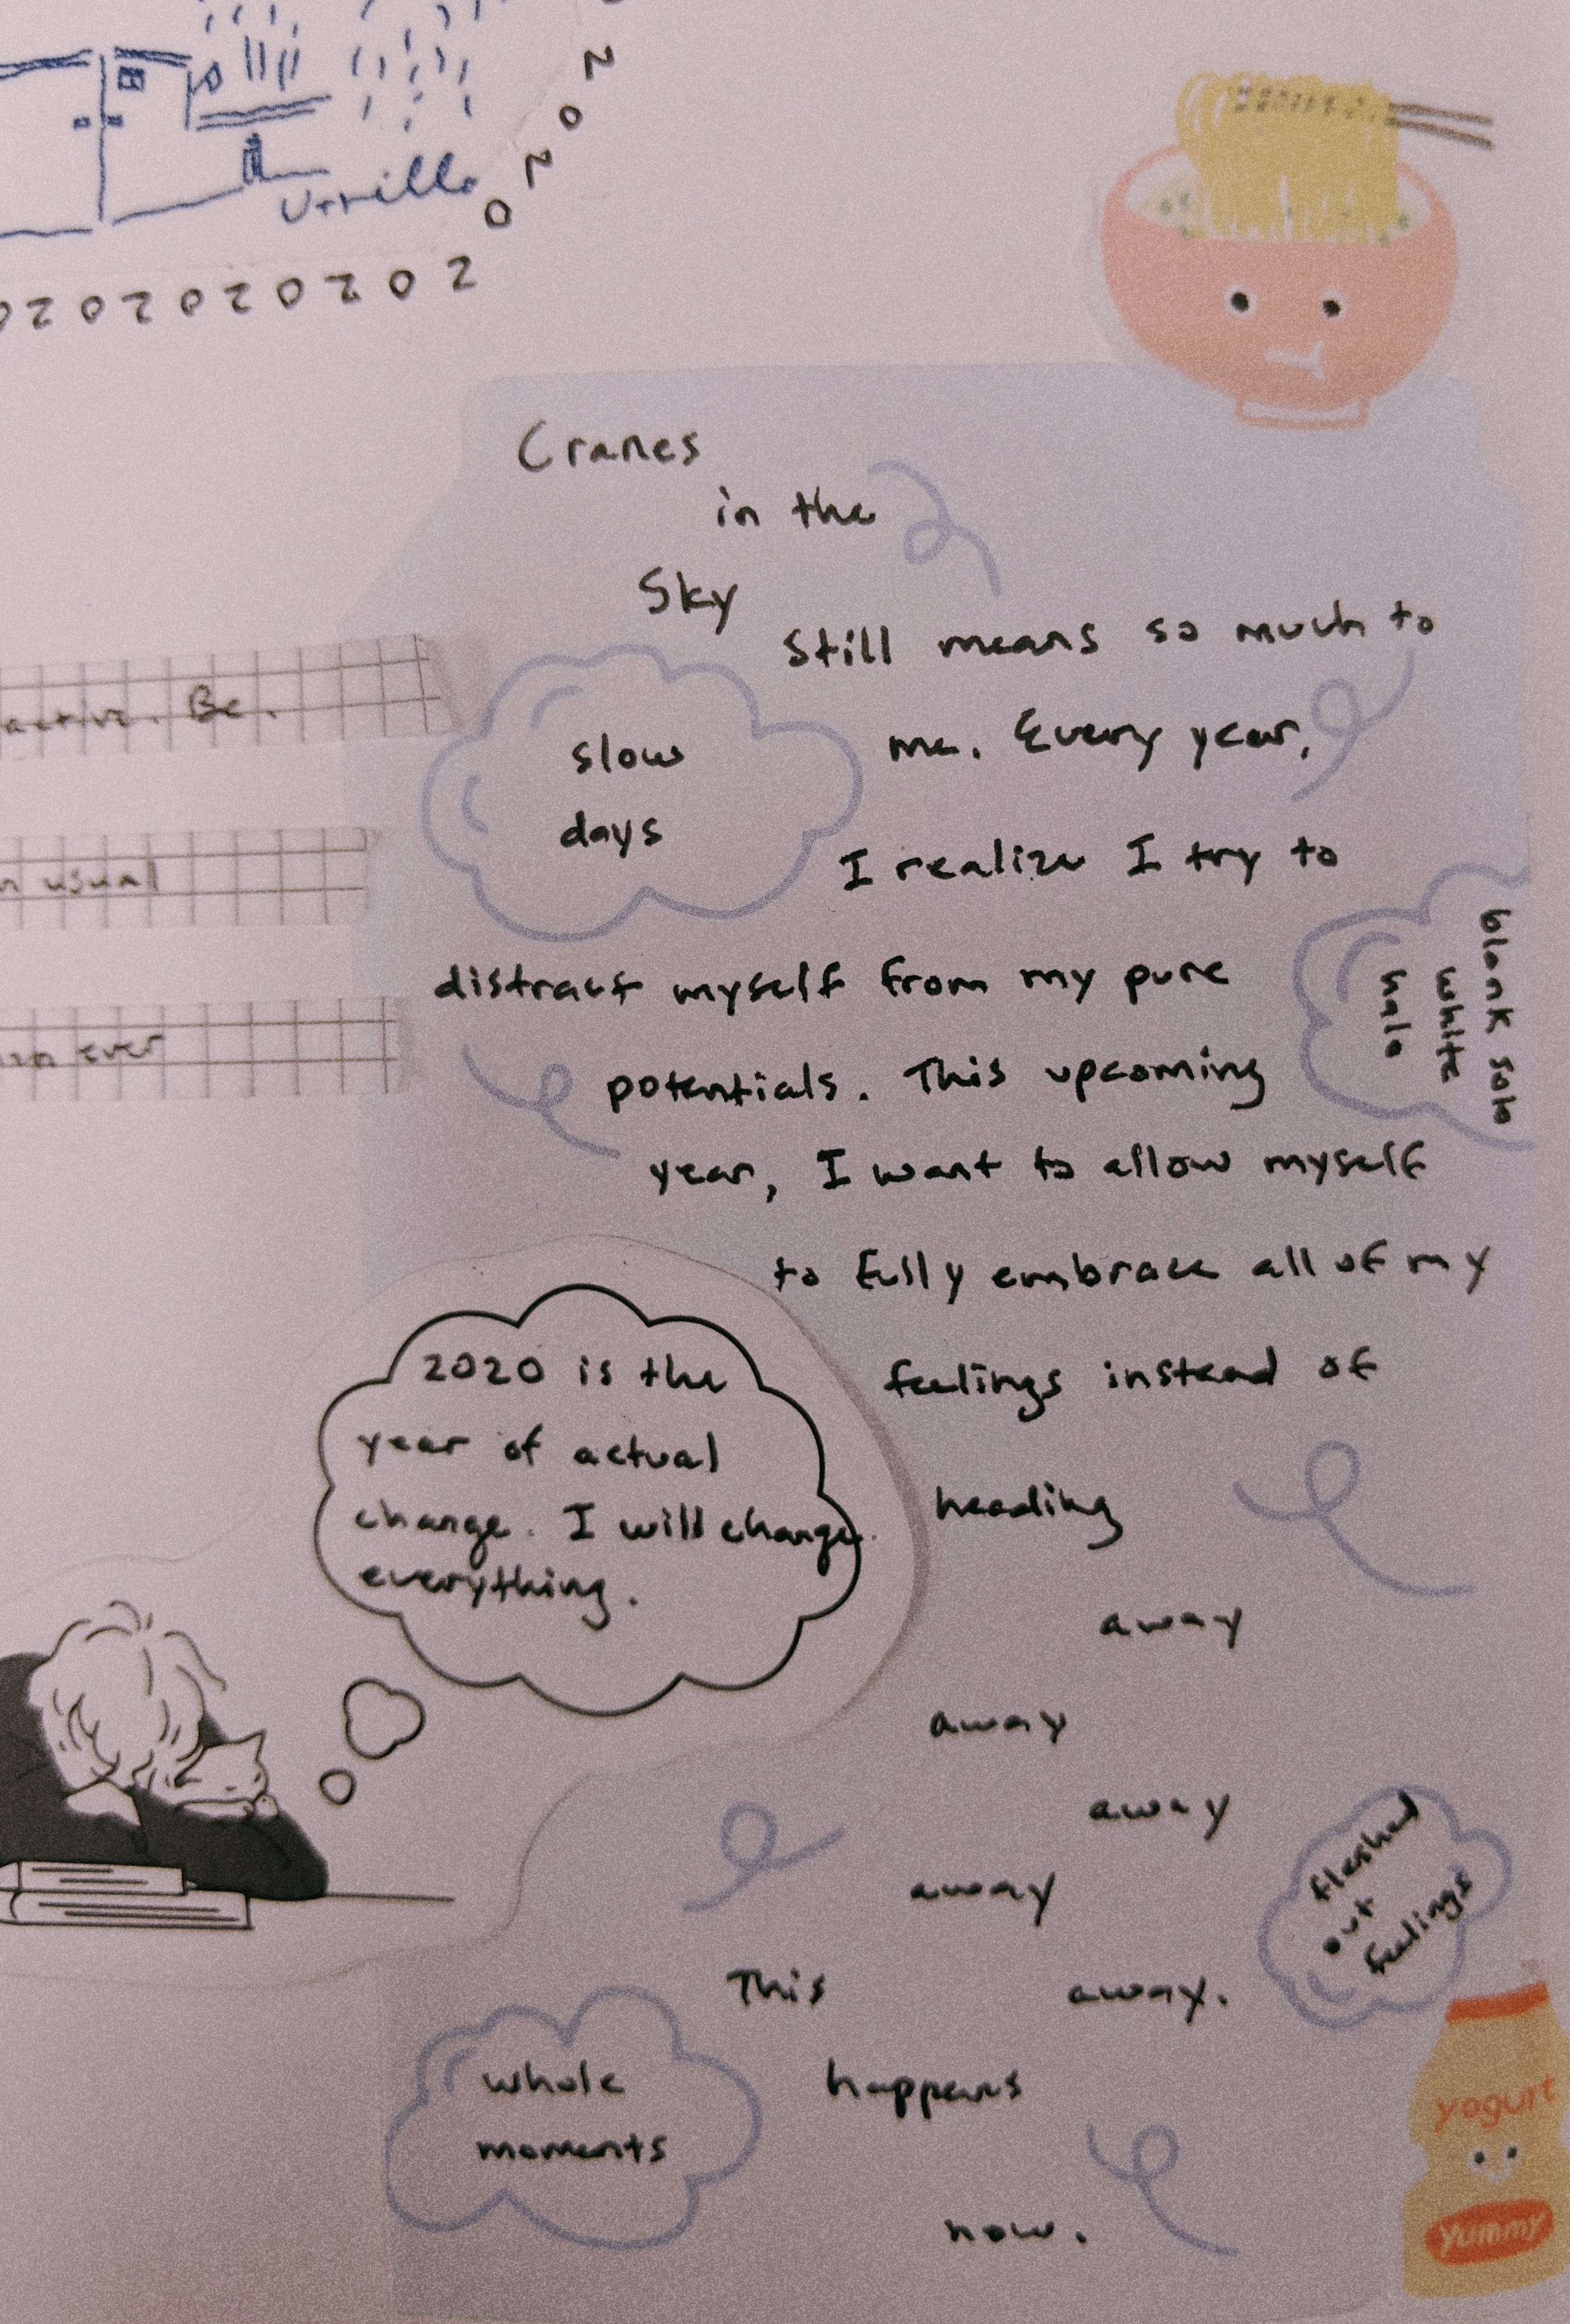 Urville
2
0
2
0
0 2 0 2 0 2 0 2 0 2
Cranes
in the
Sky
Still means so much to
me. Every year,
I realize I try to
distract myself from my pure
potentials. This upcoming
year, I want to allow myself
to fully embrace all of my
feelings instead of
heading
away
away
away
away
away.
This
happens
now.
slow
days
blank solo
white
halo
active. Be.
usual
ever
2020 is the
year of actual
change. I will change
everything.
fleshed
out
feelings
whole
moments
yogurt
yummy